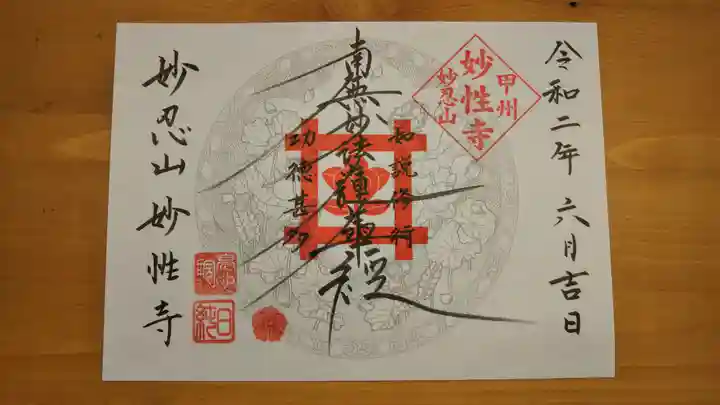 令和二年 六月吉日
甲州
妙性寺
妙忍山
如説修行
南無妙法蓮華経
功徳甚多
妙忍山 妙性寺
日純